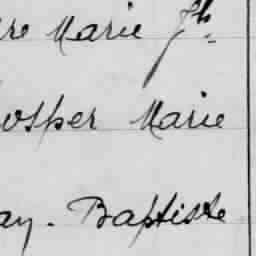 re Marie Jh.
osper Marie
ay - Baptiste